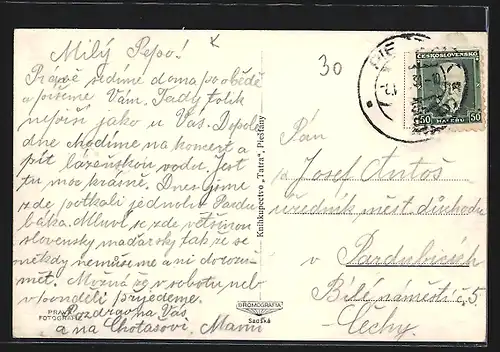 Milý Pepo!
Právě sedíme doma po obědě
a píšeme Vám. Tady tolik
neprší jako u Vás. Dopol
dne chodíme na koncert a
pít lázeňskou vodu. Jest
tu moc krásně. Dnes jsme
zde potkali jednoho Pardu
báka. Mluví se zde většinou
slovensky maďarsky tak že se
někdy nemůžeme ani dorozu-
mět. Možná že v sobotu neb
v pondělí přijedeme.
Pozdrav na Vás
a na Choťašovi. Mami
PRAVÁ
FOTOGRAFIE
BROMOGRAFIA
Sadská
Knihkupectvo „Tatra“, Piešťany
30
ČESKOSLOVENSKO
50 HALÉŘŮ 50
Pán
Josef Antoš
úředník měst. důchodu
v Pardubicích
Bílé náměstí č. 5
Čechy.